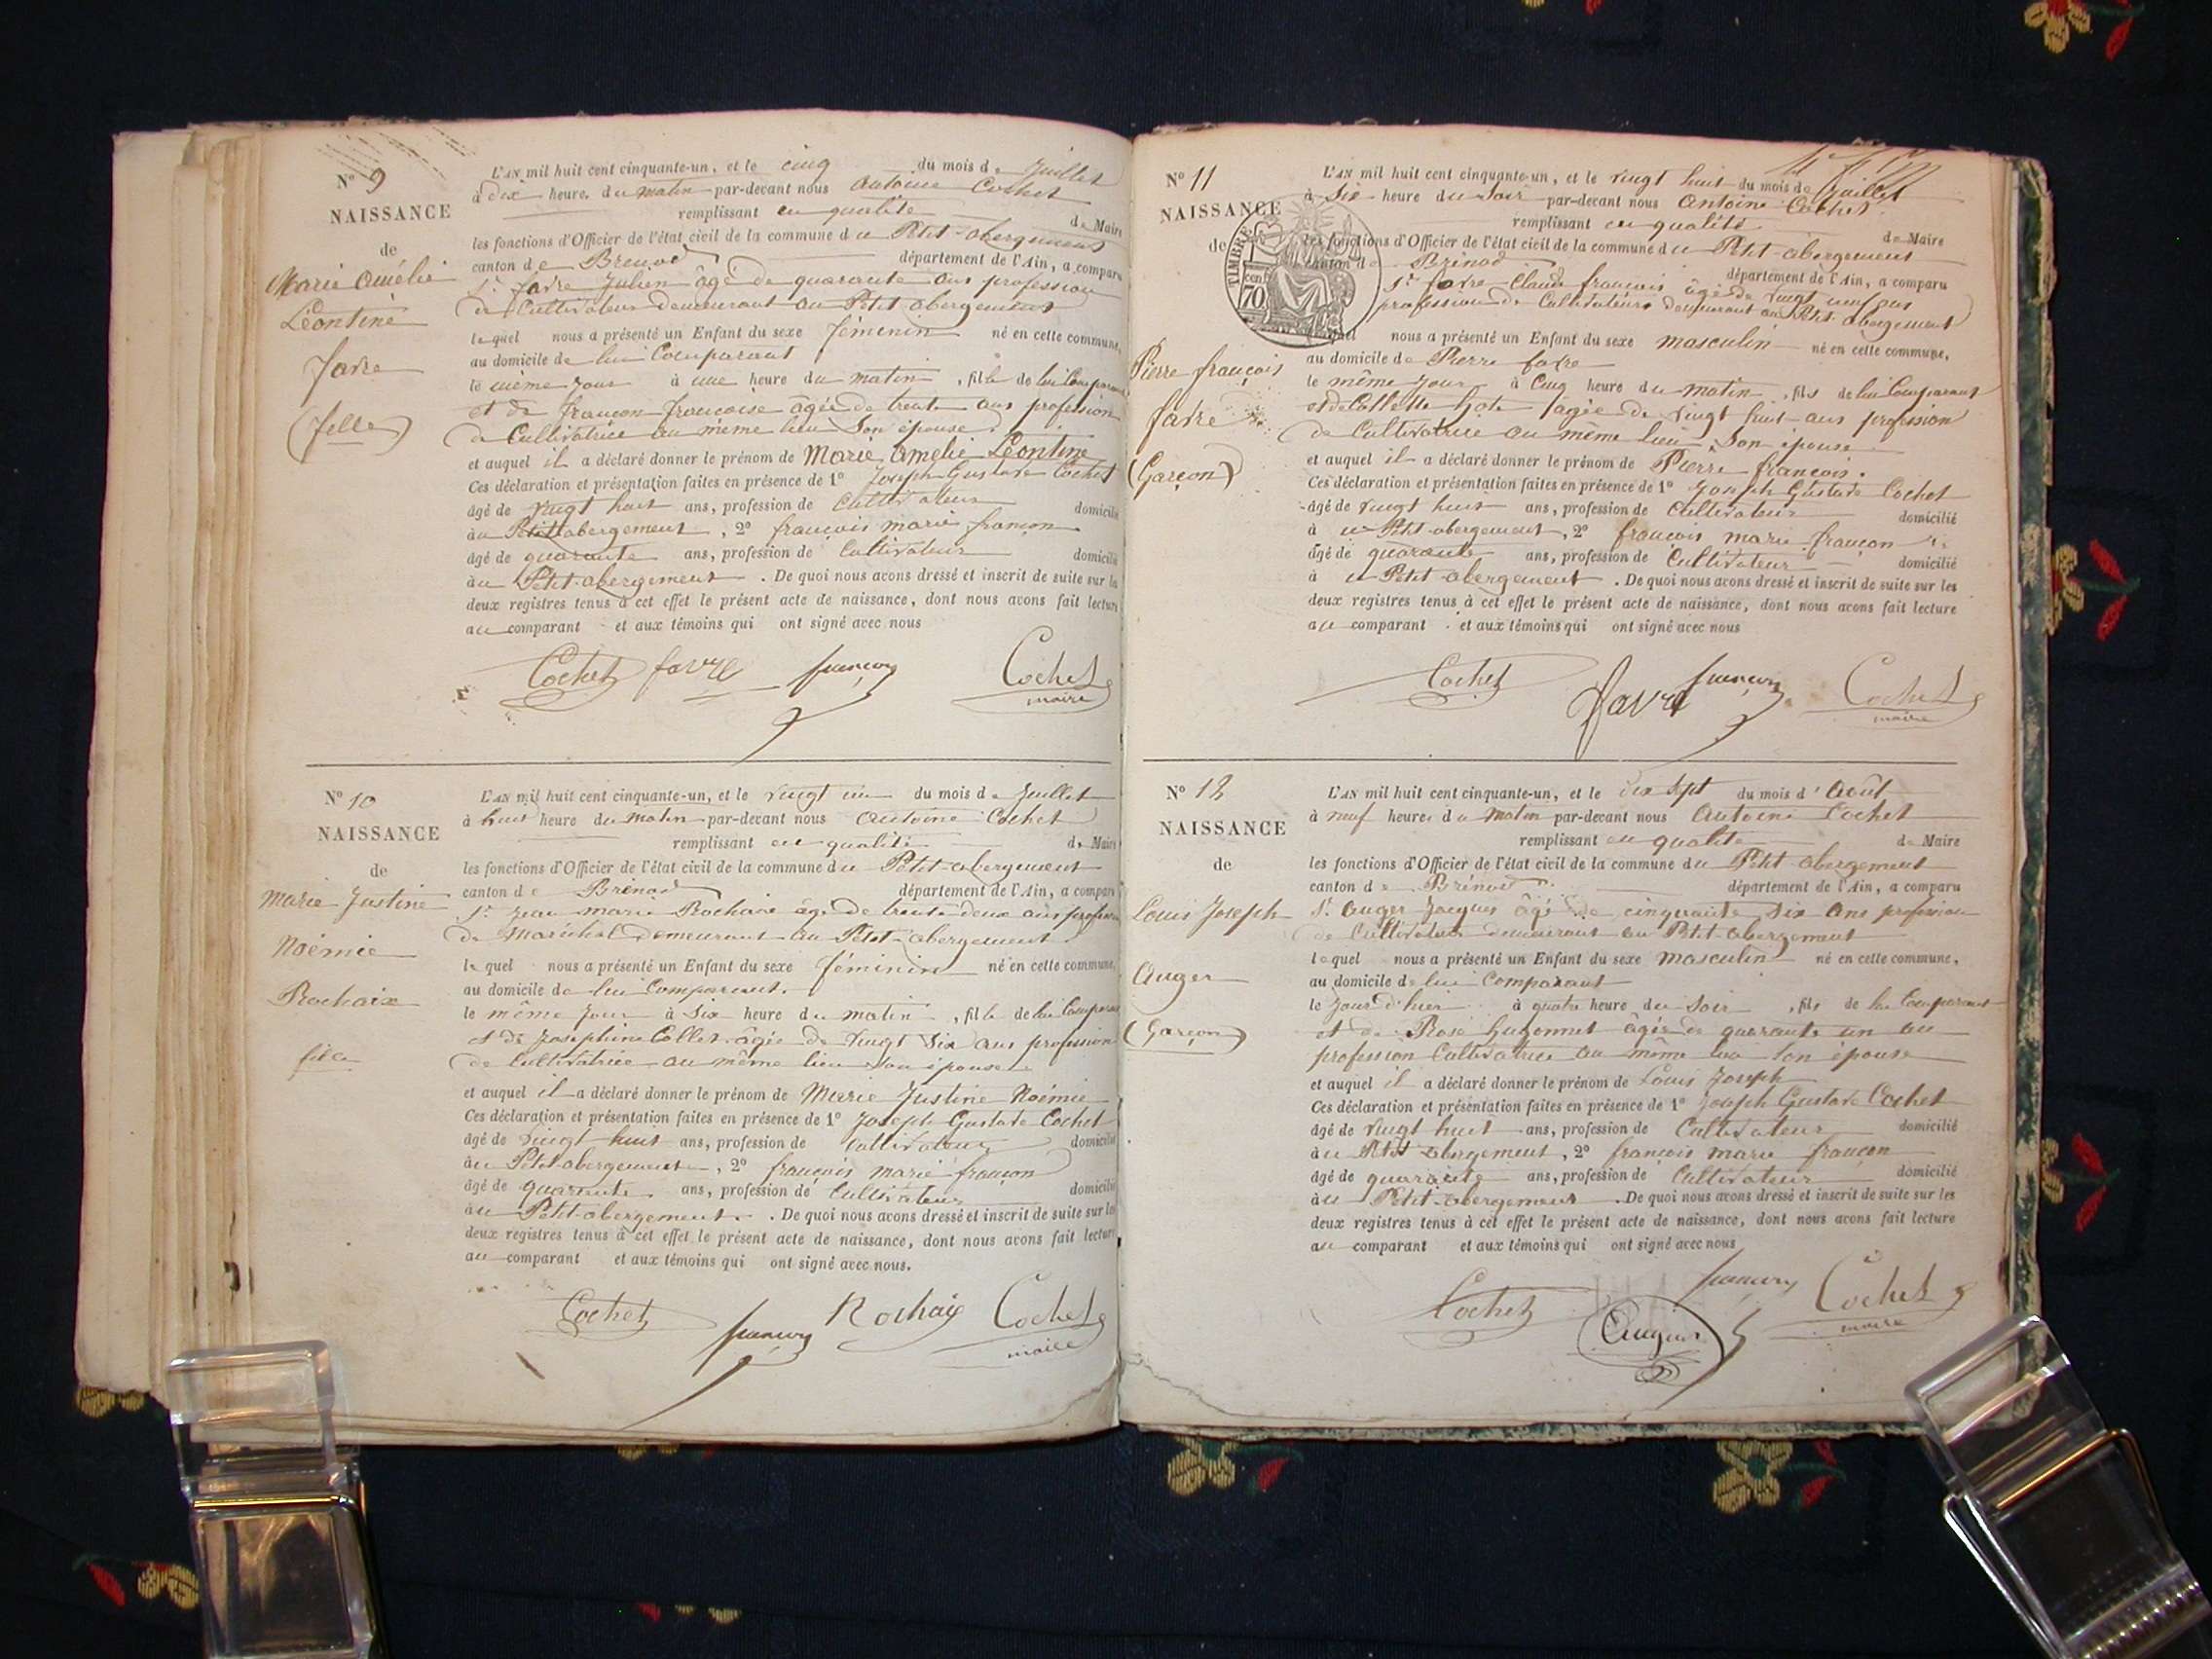 N° 9
NAISSANCE
de
Marie Amélie
Léontine
favre
(fille)
L'AN mil huit cent cinquante-un, et le cinq du mois de Juillet
à dix heure du matin par-devant nous Antoine Cochet
remplissant en qualité de Maire
les fonctions d'Officier de l'état civil de la commune du Petit-abergement
canton de Brenod département de l'Ain, a comparu
Sr. favre Julien âgé de quarante ans profession
de Cultivateur demeurant au Petit abergement
lequel nous a présenté un Enfant du sexe féminin né en cette commune,
au domicile de lui Comparant
le même jour à une heure du matin, fille de lui Comparant
et de françon françoise âgée de trente ans profession
de Cultivatrice au même lieu Son épouse.
et auquel il a déclaré donner le prénom de Marie Amélie Léontine
Ces déclaration et présentation faites en présence de 1° Joseph Gustave Cochet
âgé de vingt huit ans, profession de Cultivateur domicilié
au Petit abergement, 2° françois marie françon
âgé de quarante ans, profession de Cultivateur domicilié
au Petit-abergement. De quoi nous avons dressé et inscrit de suite sur les
deux registres tenus à cet effet le présent acte de naissance, dont nous avons fait lecture
au comparant et aux témoins qui ont signé avec nous
Cochet favre françon Cochet
maire
N° 10
NAISSANCE
de
Marie Justine
Noémie
Rochaix
fille
L'AN mil huit cent cinquante-un, et le vingt un du mois de Juillet
à huit heure du matin par-devant nous Antoine Cochet
remplissant en qualité de Maire
les fonctions d'Officier de l'état civil de la commune du Petit-abergement
canton de Brénod département de l'Ain, a comparu
Sr. Jean marie Rochaix âgé de trente deux ans profession
de Maréchal demeurant au Petit-abergement
lequel nous a présenté un Enfant du sexe féminin né en cette commune,
au domicile de lui Comparant.
le même jour à Six heure du matin, fille de lui Comparant
et de Josephine Collet âgée de vingt Six ans profession
de Cultivatrice au même lieu Son épouse.
et auquel il a déclaré donner le prénom de Marie Justine Noémie
Ces déclaration et présentation faites en présence de 1° Joseph Gustave Cochet
âgé de vingt huit ans, profession de Cultivateur domicilié
au Petit abergement, 2° françois marie françon
âgé de quarante ans, profession de Cultivateur domicilié
au Petit-abergement. De quoi nous avons dressé et inscrit de suite sur les
deux registres tenus à cet effet le présent acte de naissance, dont nous avons fait lecture
au comparant et aux témoins qui ont signé avec nous.
Cochet françon Rochaix Cochet
maire
N° 11
NAISSANCE
de
TIMBRE
70 cent
Pierre françois
favre
(Garçon)
L'AN mil huit cent cinquante-un, et le vingt huit du mois de Juillet
à Six heure du Soir par-devant nous Antoine Cochet
remplissant en qualité de Maire
les fonctions d'Officier de l'état civil de la commune du Petit-abergement
canton de Brénod département de l'Ain, a comparu
Sr. favre Claude françois âgé de vingt neuf ans
profession de Cultivateur demeurant au Petit-abergement
lequel nous a présenté un Enfant du sexe masculin né en cette commune,
au domicile de Pierre favre
le même jour à Cinq heure du matin, fils de lui Comparant
et de Collette âgée de vingt huit ans profession
de Cultivatrice au même lieu Son épouse
et auquel il a déclaré donner le prénom de Pierre françois.
Ces déclaration et présentation faites en présence de 1° Joseph Gustave Cochet
âgé de vingt huit ans, profession de Cultivateur domicilié
à u Petit-abergement, 2° françois marie françon
âgé de quarante ans, profession de Cultivateur domicilié
à u Petit abergement. De quoi nous avons dressé et inscrit de suite sur les
deux registres tenus à cet effet le présent acte de naissance, dont nous avons fait lecture
au comparant et aux témoins qui ont signé avec nous
Cochet favre françon Cochet
maire
N° 12
NAISSANCE
de
Louis Joseph
Auger
(Garçon)
L'AN mil huit cent cinquante-un, et le dix Sept du mois d'Août
à neuf heures du matin par-devant nous Antoine Cochet
remplissant en qualité de Maire
les fonctions d'Officier de l'état civil de la commune du Petit abergement
canton de Brénod département de l'Ain, a comparu
Sr. Auger Jacques âgé de cinquante Six ans profession
de Cultivateur demeurant au Petit-abergement
lequel nous a présenté un Enfant du sexe masculin né en cette commune,
au domicile de lui Comparant
le jour d'hier à quatre heure du Soir, fils de lui Comparant
et de Rose Guzonnet âgée de quarante un an
profession Cultivatrice au même lieu Son épouse
et auquel il a déclaré donner le prénom de Louis Joseph
Ces déclaration et présentation faites en présence de 1° Joseph Gustave Cochet
âgé de vingt huit ans, profession de Cultivateur domicilié
au Petit abergement, 2° françois marie françon
âgé de quarante ans, profession de Cultivateur domicilié
au Petit-abergement. De quoi nous avons dressé et inscrit de suite sur les
deux registres tenus à cet effet le présent acte de naissance, dont nous avons fait lecture
au comparant et aux témoins qui ont signé avec nous
Cochet Auger françon Cochet
maire